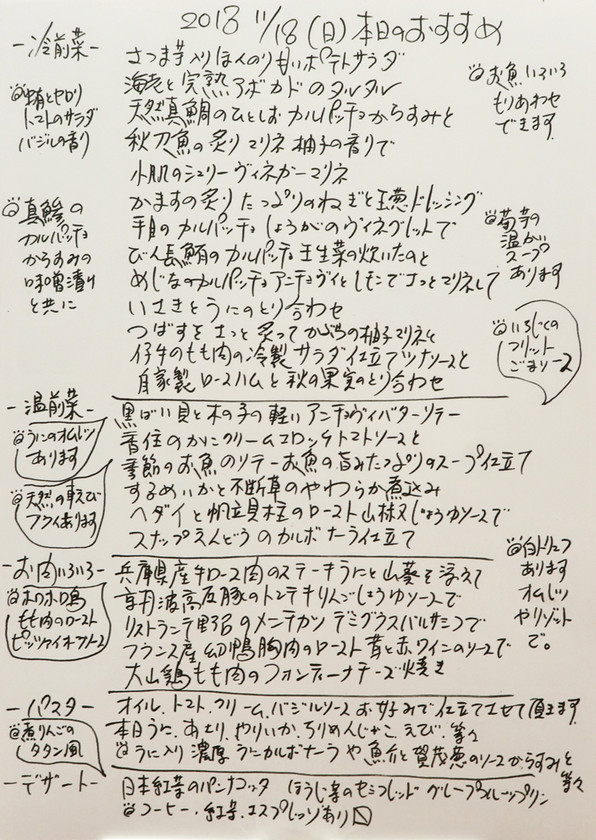 2018 11/18(日)本日のおすすめ
-冷前菜-
さつま芋入りほんのり甘いポテトサラダ
海老と完熟アボカドのタルタル
天然真鯛のひとしお カルパッチョからすみと
秋刀魚の炙りマリネ 柚子の香りで
小肌のシェリーヴィネガーマリネ
かますの炙り たっぷりのねぎと玉葱ドレッシング
平目のカルパッチョ しょうがのヴィネグレットで
びん長鮪のカルパッチョ 壬生菜の炊いたのと
めじなのカルパッチョ アンチョヴィとレモンでさっとマリネして
いさきとうにのとり合わせ
つばすをさっと炙って かぶらの柚子マリネと
仔牛のもも肉の冷製 サラダ仕立て ツナソースと
自家製ロースハムと秋の果実のとり合わせ
トマトのサラダ
バジルの香り
真鯵の
カルパッチョ
からすみの
味噌漬け
と共に
お魚いろいろ
もりあわせ
できます
菊芋の
温かい
スープ
あります
いちじくの
フリット
ごまソース
-温前菜-
黒ばい貝と木の子の軽いアンチョヴィバターソテー
香住のかにクリームコロッケ トマトソースと
季節のお魚のソテー お魚の旨みたっぷりのスープ仕立て
するめいかと不断草のやわらか煮込み
ヘダイと帆立貝柱のロースト 山椒じょうゆソースで
スナップえんどうのカルボナーラ仕立て
うにのオムレツ
あります
天然の車えび
フライあります
-お肉いろいろ-
兵庫県産牛ロース肉のステーキ うにと山葵を添えて
京丹波高原豚のトンテキ りんごしょうゆソースで
リストランテ野呂のメンチカツ デミグラスバルサミコで
フランス産 幼鴨胸肉のロースト 茸と赤ワインのソースで
大山鶏もも肉のフォンティーナチーズ焼き
ホロホロ鳥
もも肉のロースト
ピッツァイオラソース
白トリュフ
あります
オムレツ
やリゾット
で。
-パスタ-
オイル、トマト、クリーム、バジルソース お好みで仕立てさせて頂きます
本日うに、あさり、やりいか、ちりめんじゃこ、えび、等々
うに入り 濃厚 うにカルボナーラや魚介と賀茂葱のソース からすみと 等々
煮りんごの
タタン風
-デザート-
日本紅茶のパンナコッタ ほうじ茶のセミフレッド グレープフルーツプリン
コーヒー、紅茶、エスプレッソあり